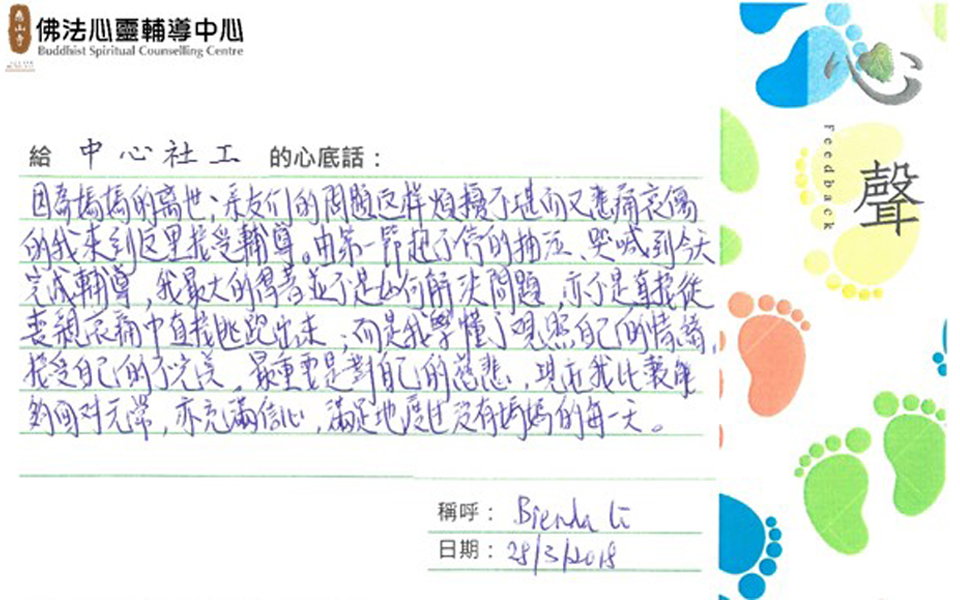 慈山寺
佛法心靈輔導中心
Buddhist Spiritual Counselling Centre
心
Feedback
聲
給 中心社工 的心底話：
因為媽媽的离世；亲友们的問題这样煩擾不堪而又悲痛哀傷
的我来到这里接受輔導。由第一節起不停的抽泣、哭喊到今天
完成輔導，我最大的得着並不是如何解決問題，亦不是直接從
喪親哀痛中直接逃跑出来；而是我學懂了观照自己的情緒，
接受自己的不完美，最重要是對自己的慈悲，現在我比較能
夠面对无常，亦充滿信心，滿足地度过没有媽媽的每一天。
稱呼： Brenda Li
日期： 28/3/2018